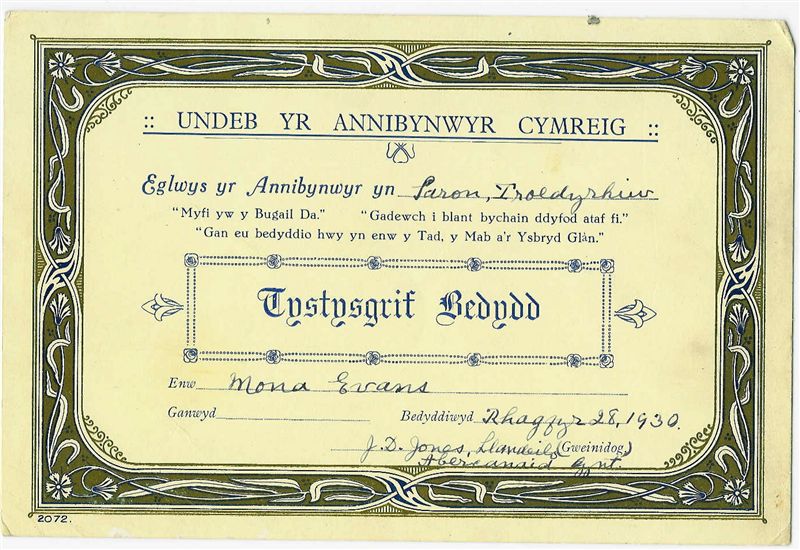 :: UNDEB YR ANNIBYNWYR CYMREIG ::
Eglwys yr Annibynwyr yn Saron, Troedyrhiw
"Myfi yw y Bugail Da." "Gadewch i blant bychain ddyfod ataf fi."
"Gan eu bedyddio hwy yn enw y Tad, y Mab a'r Ysbryd Glân."
Tystysgrif Bedydd
Enw Mona Evans
Ganwyd Bedyddiwyd Rhagfyr 28, 1930.
J. D. Jones, Llandeilo (Gweinidog)
Abercanaid gynt.
2072.